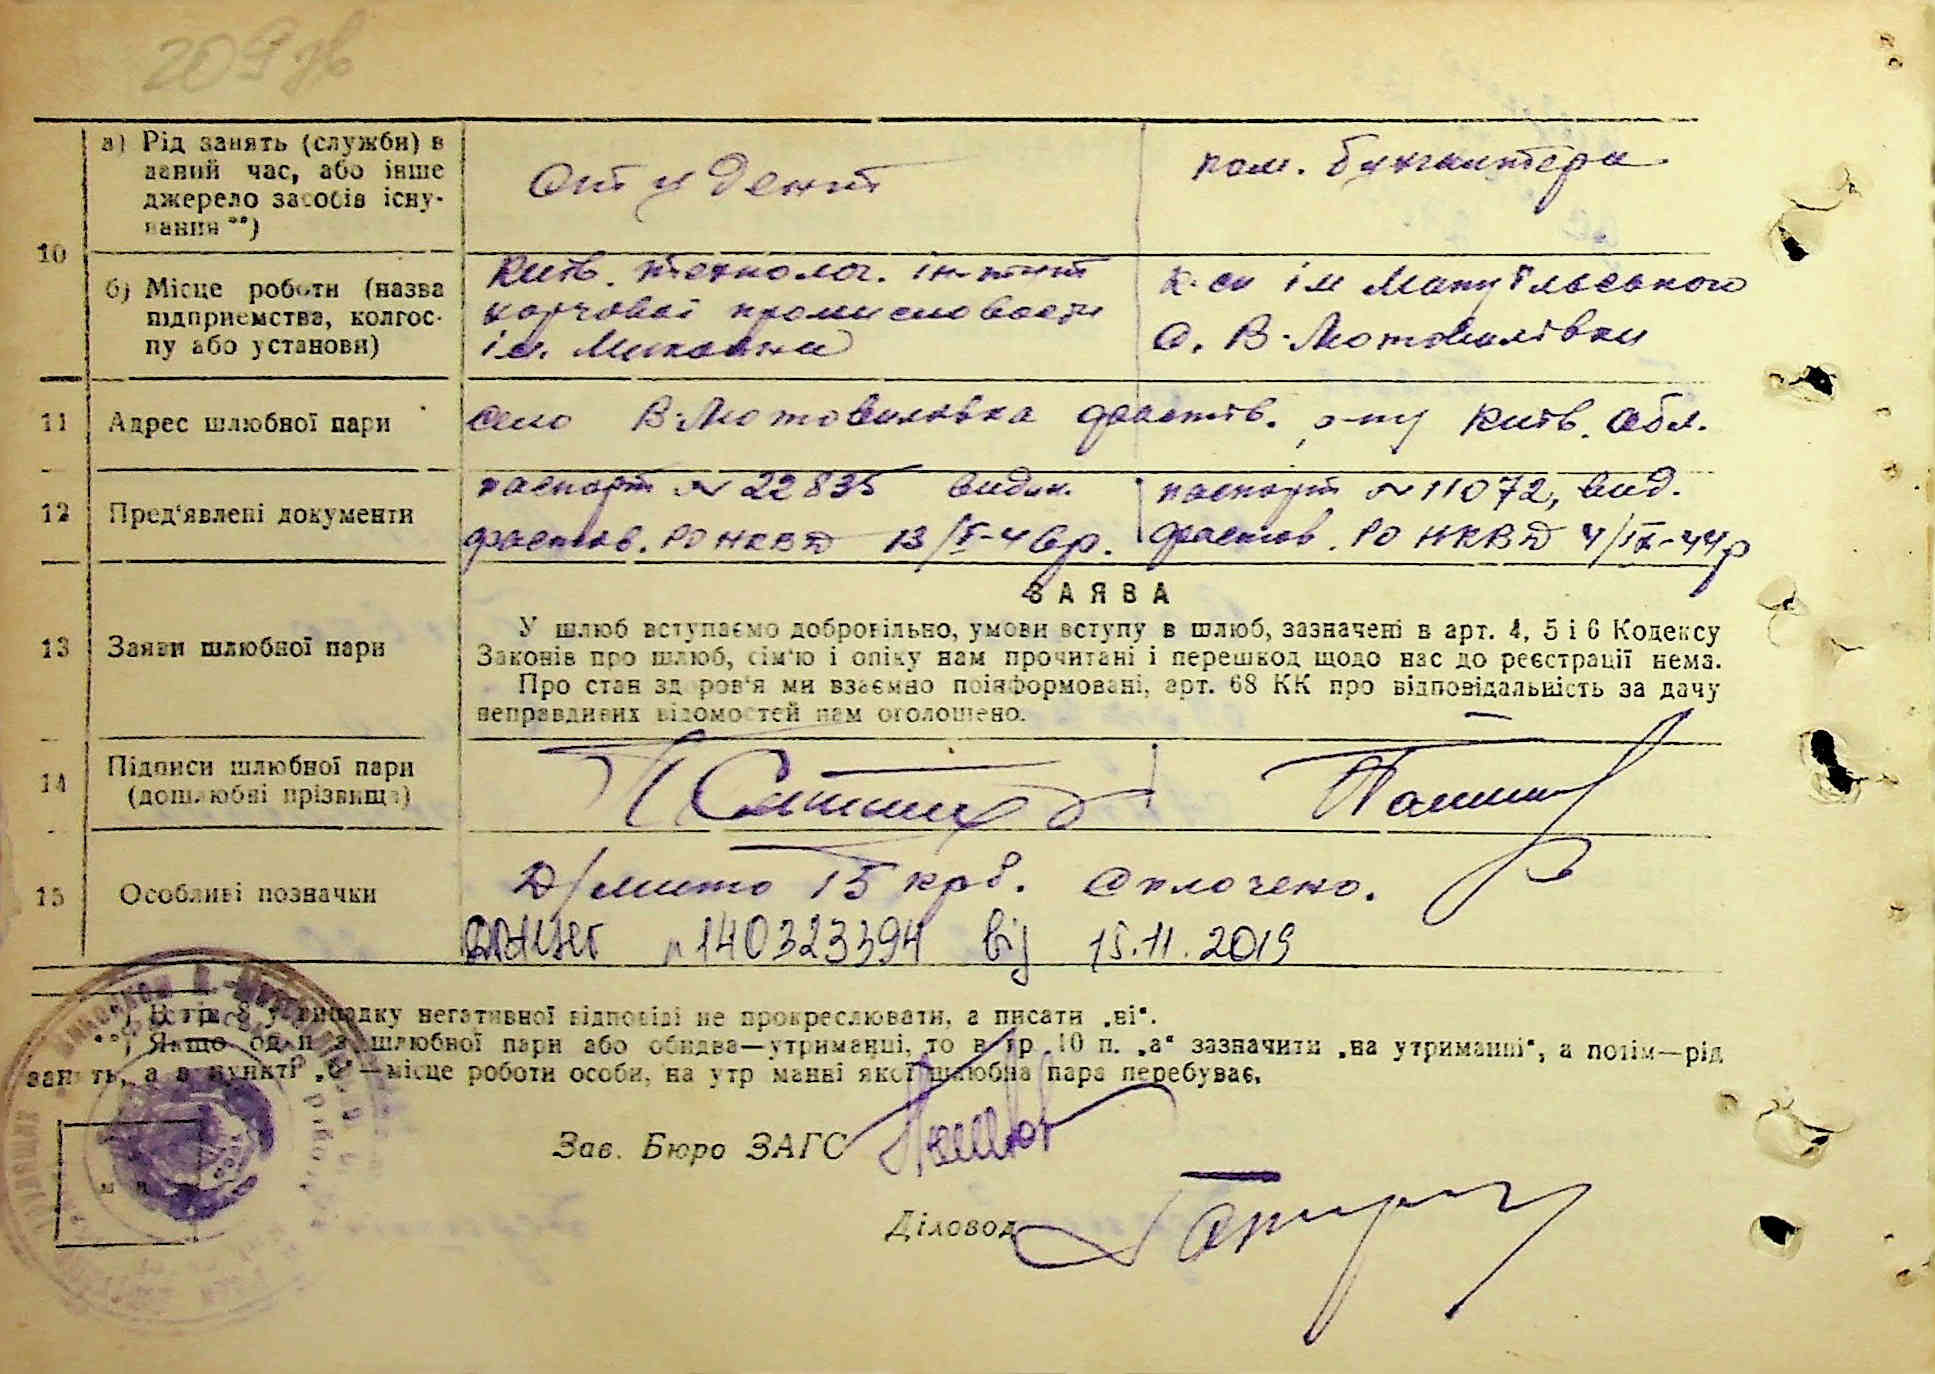 209 зв
10
а) Рід занять (служби) в
даний час, або інше
джерело засобів існу-
вання **)
Студент
пом. бухгалтера
б) Місце роботи (назва
підприємства, колгос-
пу або установи)
Київ. технолог. ін-тут
харчової промисловости
ім. Микояна
к-сп ім Мануїльського
с. В-Мотовилівки
11
Адрес шлюбної пари
село В-Мотовиловка фастів. р-ну Київ. обл.
12
Пред'явлені документи
паспорт № 22835 видан.
фастов. РО НКВД 13/ІІ-46р.
паспорт №11072, вид.
фастов. РО НКВД 4/ІХ-44р
13
Заяви шлюбної пари
ЗАЯВА
У шлюб вступаємо добровільно, умови вступу в шлюб, зазначені в арт. 4, 5 і 6 Кодексу
Законів про шлюб, сім'ю і опіку нам прочитані і перешкод щодо нас до реєстрації нема.
Про стан здоров'я ми взаємно поінформовані, арт. 68 КК про відповідальність за дачу
неправдивих відомостей нам оголошено.
14
Підписи шлюбної пари
(дошлюбні прізвища)
15
Особливі позначки
Д/мито 15 крб. Оплочено.
№140323394 від 15.11.2019
*) В гр. 8 у випадку негативної відповіді не прокреслювати, а писати „ні“.
**) Якщо один з шлюбної пари або обидва—утриманці, то в гр. 10 п. „а“ зазначити „на утриманні“, а потім—рід
занять, а в пункті „б“—місце роботи особи, на утриманні якої шлюбна пара перебуває.
Зав. Бюро ЗАГС
Діловод